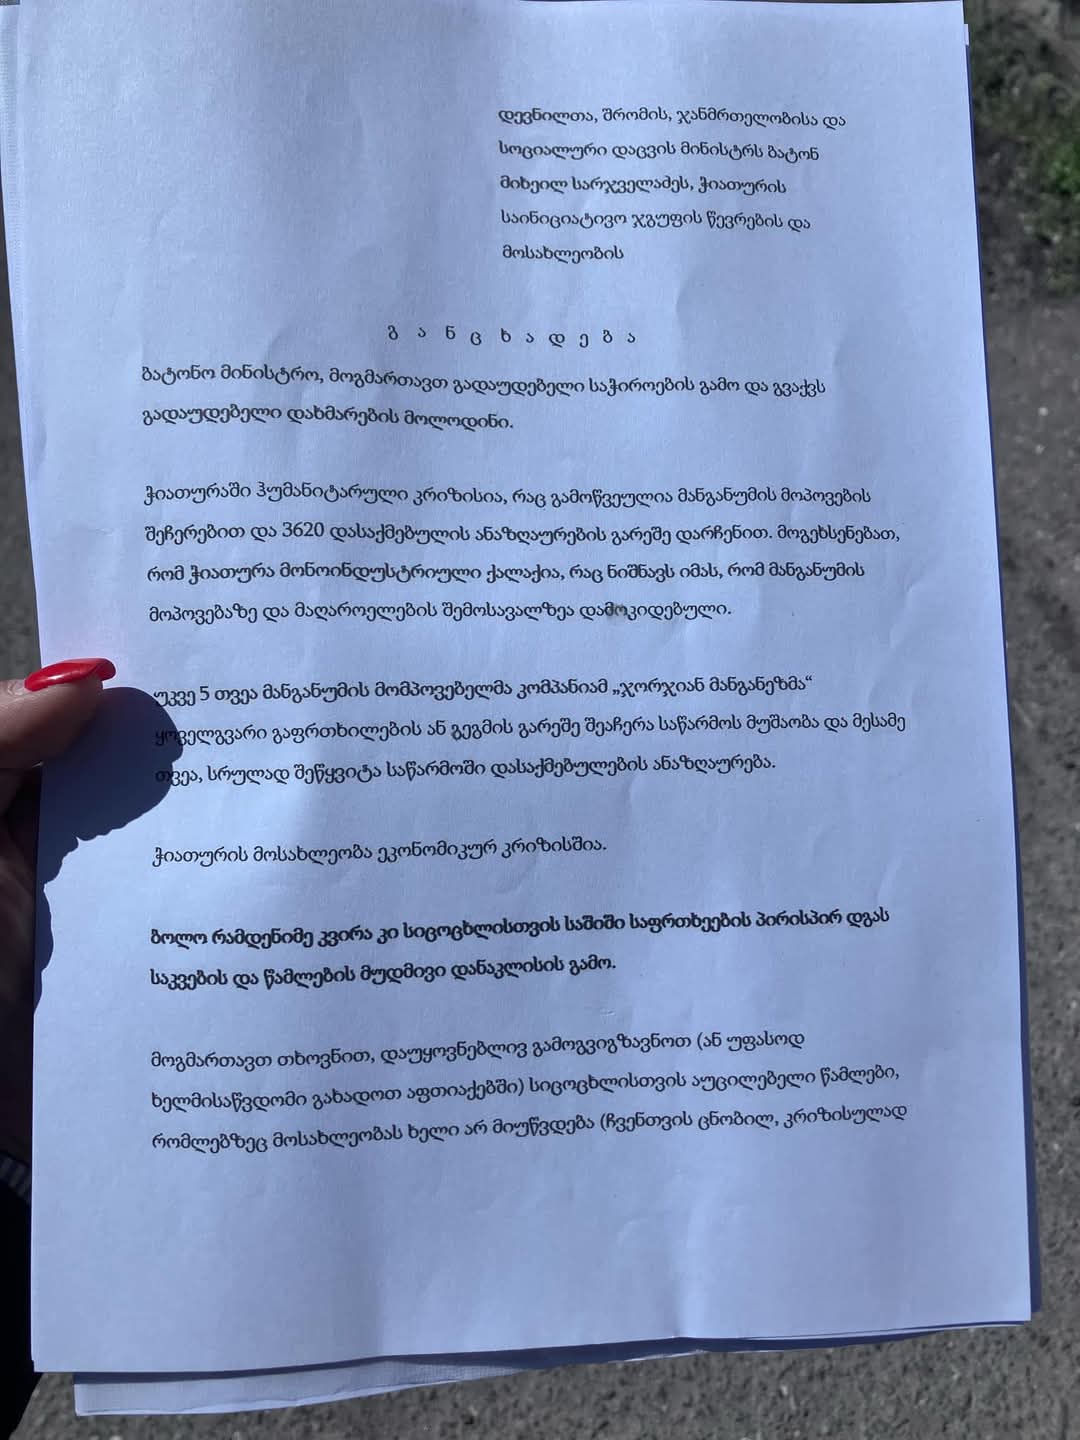 დევნილთა, შრომის, ჯანმრთელობისა და
სოციალური დაცვის მინისტრს ბატონ
მიხეილ სარჯველაძეს, ჭიათურის
საინიციატივო ჯგუფის წევრების და
მოსახლეობის
გ ა ნ ც ხ ა დ ე ბ ა
ბატონო მინისტრო, მოგმართავთ გადაუდებელი საჭიროების გამო და გვაქვს
გადაუდებელი დახმარების მოლოდინი.
ჭიათურაში ჰუმანიტარული კრიზისია, რაც გამოწვეულია მანგანუმის მოპოვების
შეჩერებით და 3620 დასაქმებულის ანაზღაურების გარეშე დარჩენით. მოგეხსენებათ,
რომ ჭიათურა მონოინდუსტრიული ქალაქია, რაც ნიშნავს იმას, რომ მანგანუმის
მოპოვებაზე და მაღაროელების შემოსავალზეა დამოკიდებული.
უკვე 5 თვეა მანგანუმის მომპოვებელმა კომპანიამ „ჯორჯიან მანგანეზმა“
ყოველგვარი გაფრთხილების ან გეგმის გარეშე შეაჩერა საწარმოს მუშაობა და მესამე
თვეა, სრულად შეწყვიტა საწარმოში დასაქმებულების ანაზღაურება.
ჭიათურის მოსახლეობა ეკონომიკურ კრიზისშია.
ბოლო რამდენიმე კვირა კი სიცოცხლისთვის საშიში საფრთხეების პირისპირ დგას
საკვების და წამლების მუდმივი დანაკლისის გამო.
მოგმართავთ თხოვნით, დაუყოვნებლივ გამოგვიგზავნოთ (ან უფასოდ
ხელმისაწვდომი გახადოთ აფთიაქებში) სიცოცხლისთვის აუცილებელი წამლები,
რომლებზეც მოსახლეობას ხელი არ მიუწვდება (ჩვენთვის ცნობილ, კრიზისულად